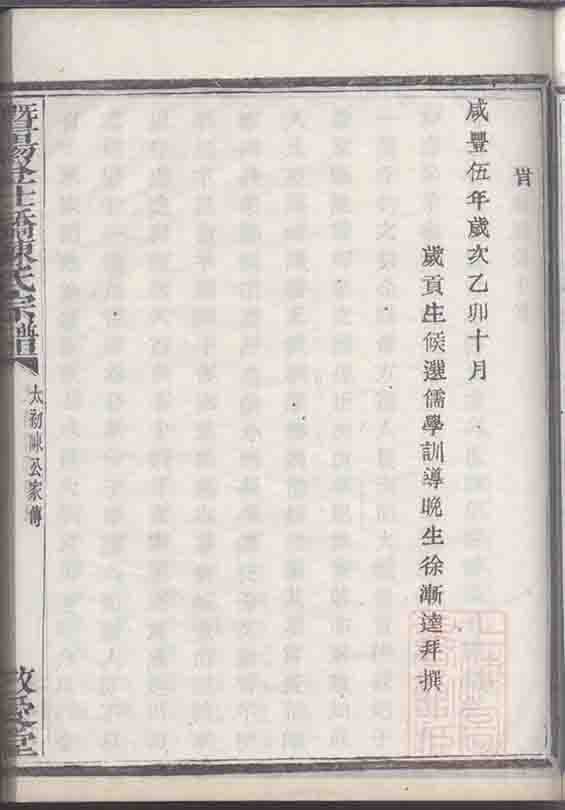 咸豐伍年歲次乙卯十月
歲貢生候選儒學訓導晚生徐漸逵拜撰
暨陽登仕橋陳氏宗譜
太初陳公家傳
敬愛堂